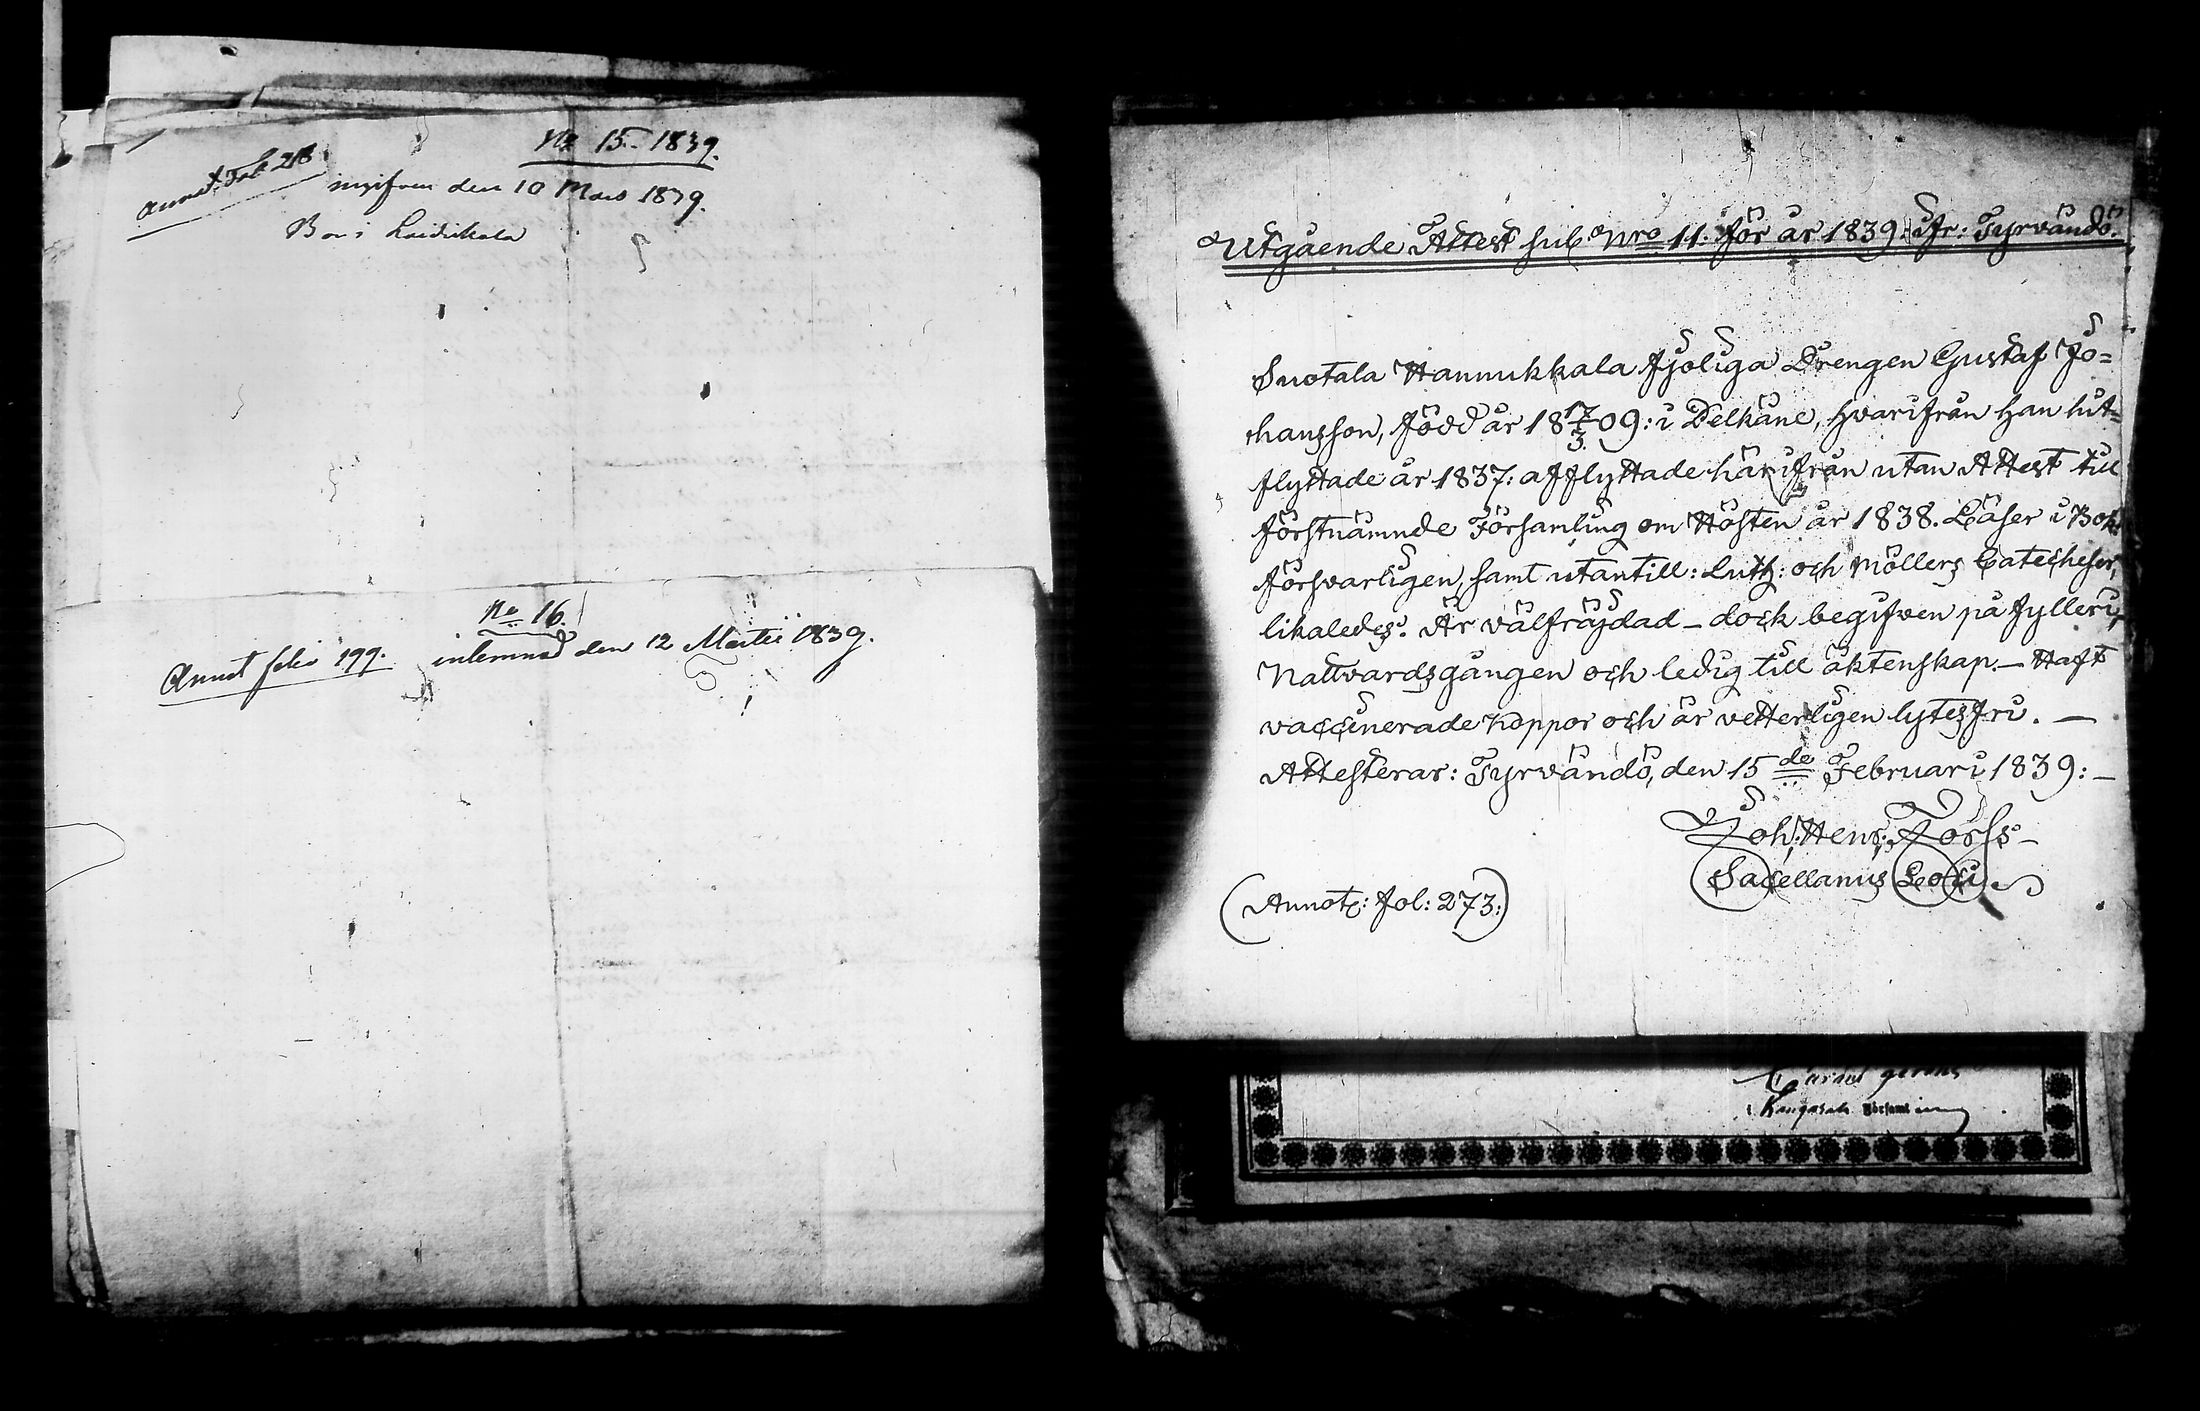 No 15. 1839.
annot. Fol. 218
ingifven den 10 Mars 1839.
Bor i
No 16.
Annot folio 199. inlemnad den 12 Martii 1839.
Utgående Attest sub Nro 11: för år 1839: Fr: Tyrvändö.
Suotala Hannukkala fjoliga Drengen Gustaf Jo=
hansson, född år 18 17/3 09: i Pelkäne, hvarifrån han hit=
flyttade år 1837: afflyttade härifrån utan Attest till
förstnämnde Församling om Hösten år 1838. Läser i Bok
försvarligen, samt utantill: Luth: och Möllers Catecheser,
likaledes. Är välfräjdad – dock begifven på fylleri,
Nattvardsgången och ledig till äktenskap. – Haft
vaccinerade koppor och är vetterligen lytesfri. –
Attesterar: Tyrvändö, den 15de Februari 1839: –
Joh: Henr: Forss –
Sacellanus Loci.
(Annot: fol: 273:)
Kangasala Församling